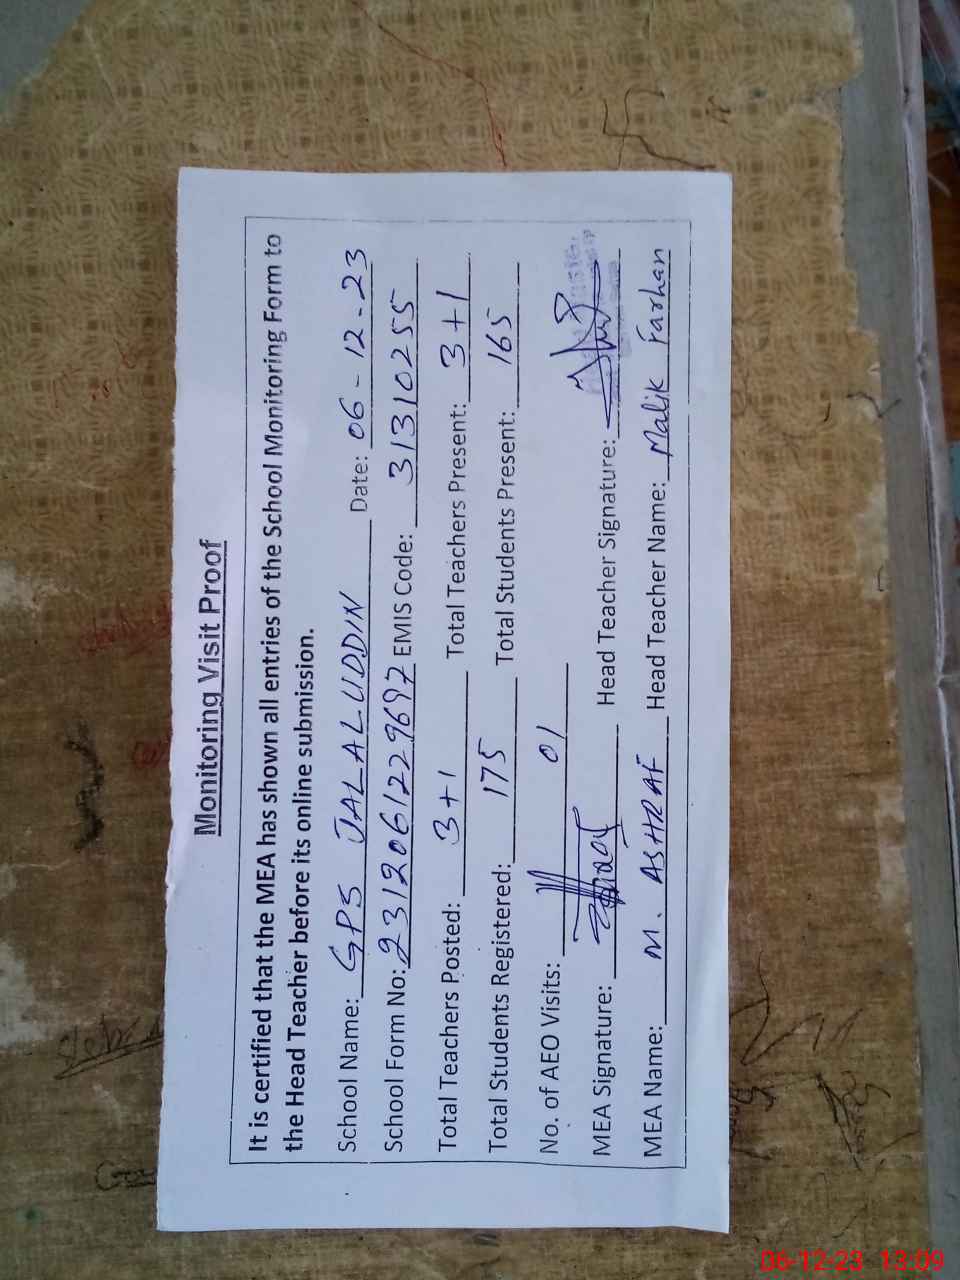 Monitoring Visit Proof
It is certified that the MEA has shown all entries of the School Monitoring Form to
the Head Teacher before its online submission.
School Name: GPS JALALUDDIN Date: 06-12-23
School Form No: 2312061229697 EMIS Code: 31310255
Total Teachers Posted: 3+1 Total Teachers Present: 3+1
Total Students Registered: 175 Total Students Present: 165
No. of AEO Visits: 01
MEA Signature: Head Teacher Signature:
MEA Name: M. ASHRAF Head Teacher Name: Malik Farhan
06-12-23 13:09